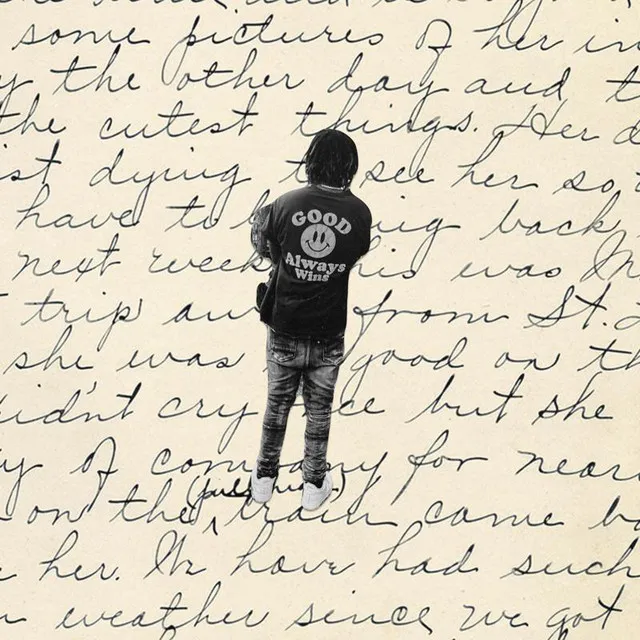 some pictures of her in
the other day and
the cutest things. Her
dying to see her so
have to bring back
next week. This was
trip and from St.
she was good on th
didn't cry once but she
of company for near
on the train came ba
her. We have had such
weather since we got
GOOD
Always
Wins